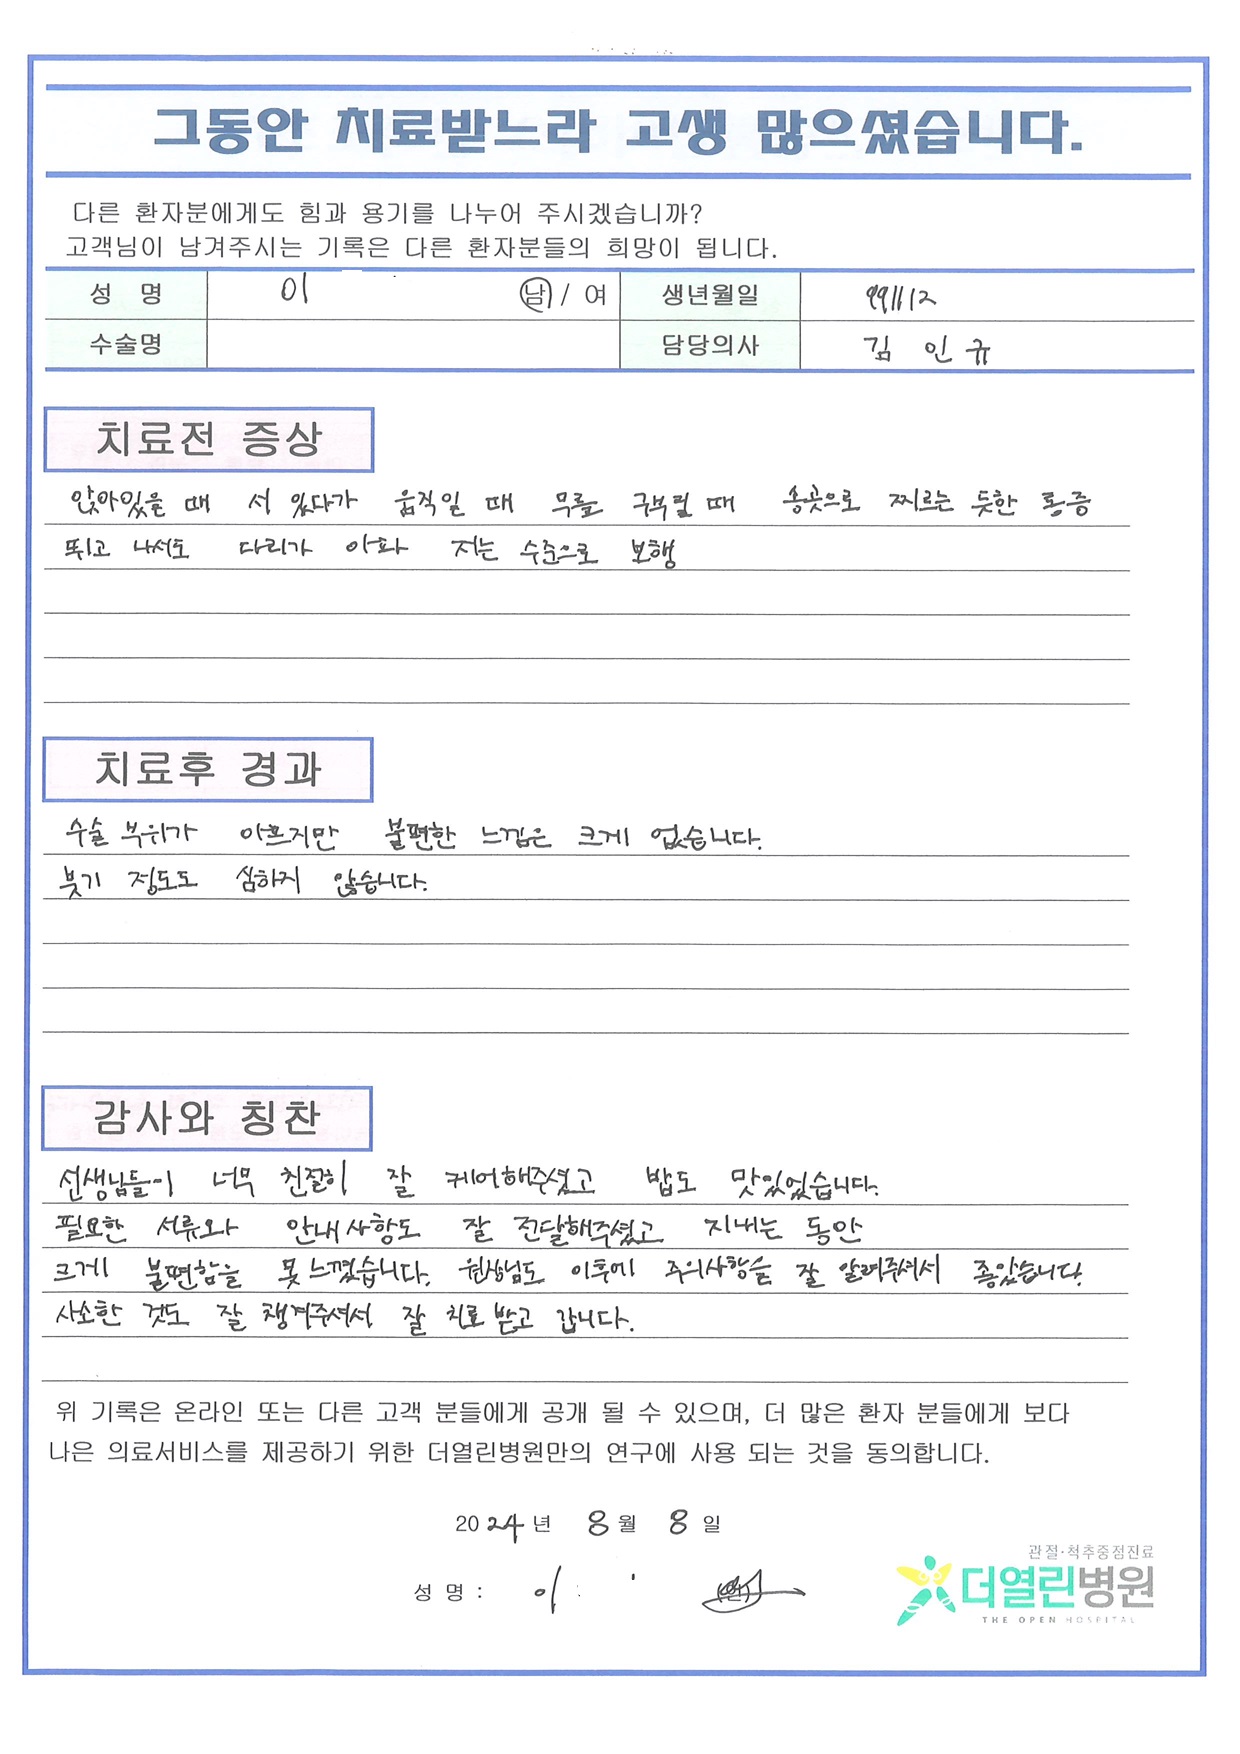 그동안 치료받느라 고생 많으셨습니다.
다른 환자분에게도 힘과 용기를 나누어 주시겠습니까?
고객님이 남겨주시는 기록은 다른 환자분들의 희망이 됩니다.
성 명 이 남 / 여 생년월일 991112
수술명 담당의사 김 인 규
치료전 증상
앉아있을 때 서 있다가 움직일 때 무릎 구부릴 때 송곳으로 찌르는 듯한 통증
뛰고 나서도 다리가 아파 저는 수준으로 보행
치료후 경과
수술 부위가 아프지만 불편한 느낌은 크게 없습니다.
붓기 정도도 심하지 않습니다.
감사와 칭찬
선생님들이 너무 친절히 잘 케어해주셨고 밥도 맛있었습니다.
필요한 서류와 안내사항도 잘 전달해주셨고 지내는 동안
크게 불편함을 못 느꼈습니다. 원장님도 이후에 주의사항을 잘 알려주셔서 좋았습니다.
사소한 것도 잘 챙겨주셔서 잘 치료 받고 갑니다.
위 기록은 온라인 또는 다른 고객 분들에게 공개 될 수 있으며, 더 많은 환자 분들에게 보다
나은 의료서비스를 제공하기 위한 더열린병원만의 연구에 사용 되는 것을 동의합니다.
2024년 8월 8일
성 명 : 이
관절·척추중점진료
더열린병원
THE OPEN HOSPITAL